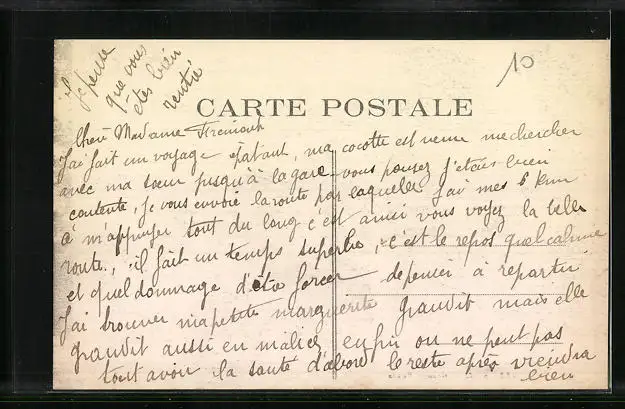 Je pense
que vous
etes bien
rentré
10
CARTE POSTALE
Cheri Madame
J'ai fait un voyage épatant, ma cocotte est venue me chercher
avec ma soeur jusqu'à la gare vous pensez j'étais bien
contente, je vous envoie la route par laquelle j'ai mes 6 km
à m'appuyer tout du long c'est ainsi vous voyez la belle
route, il fait un temps superbe, c'est le repos quel calme
et quel dommage d'être forcer de penser à repartir
J'ai trouver ma petite marguerite grandit mais elle
grandit aussi en malice enfin on ne peut pas
tout avoir la santé d'abord le reste après viendra
bien